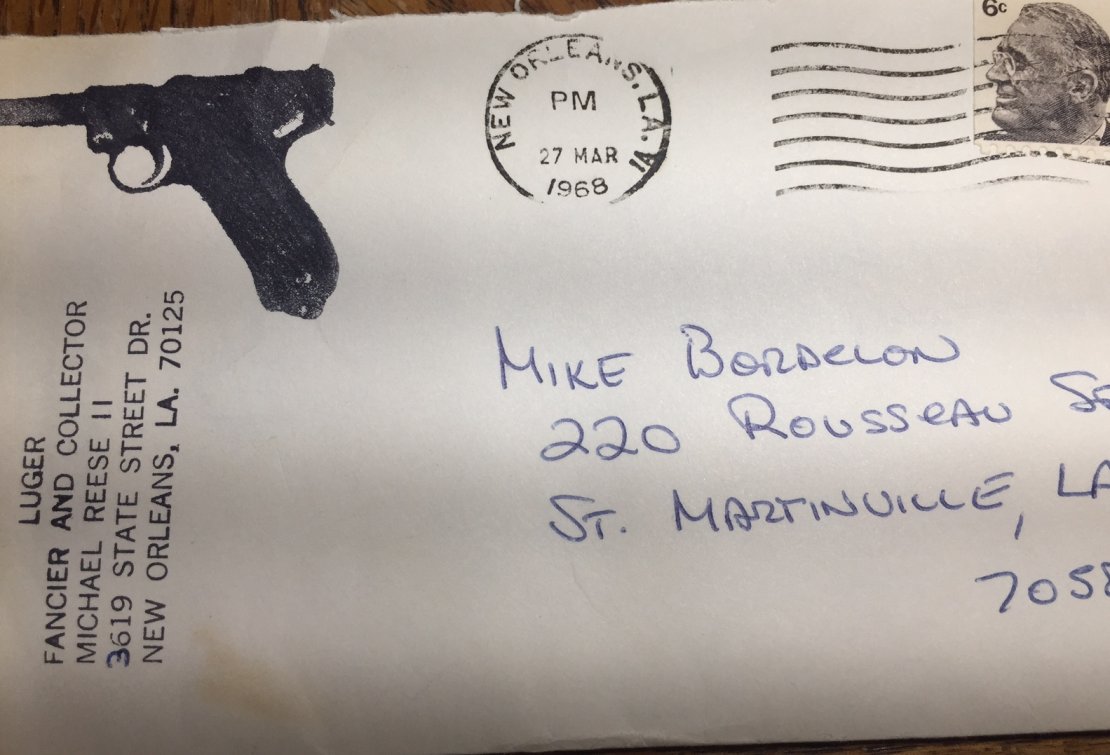 LUGER
FANCIER AND COLLECTOR
MICHAEL REESE II
3619 STATE STREET DR.
NEW ORLEANS, LA. 70125
NEW ORLEANS, LA.
PM
27 MAR
1968
6c
MIKE BORDELON
220 ROUSSEAU
ST. MARTINVILLE, LA
7058